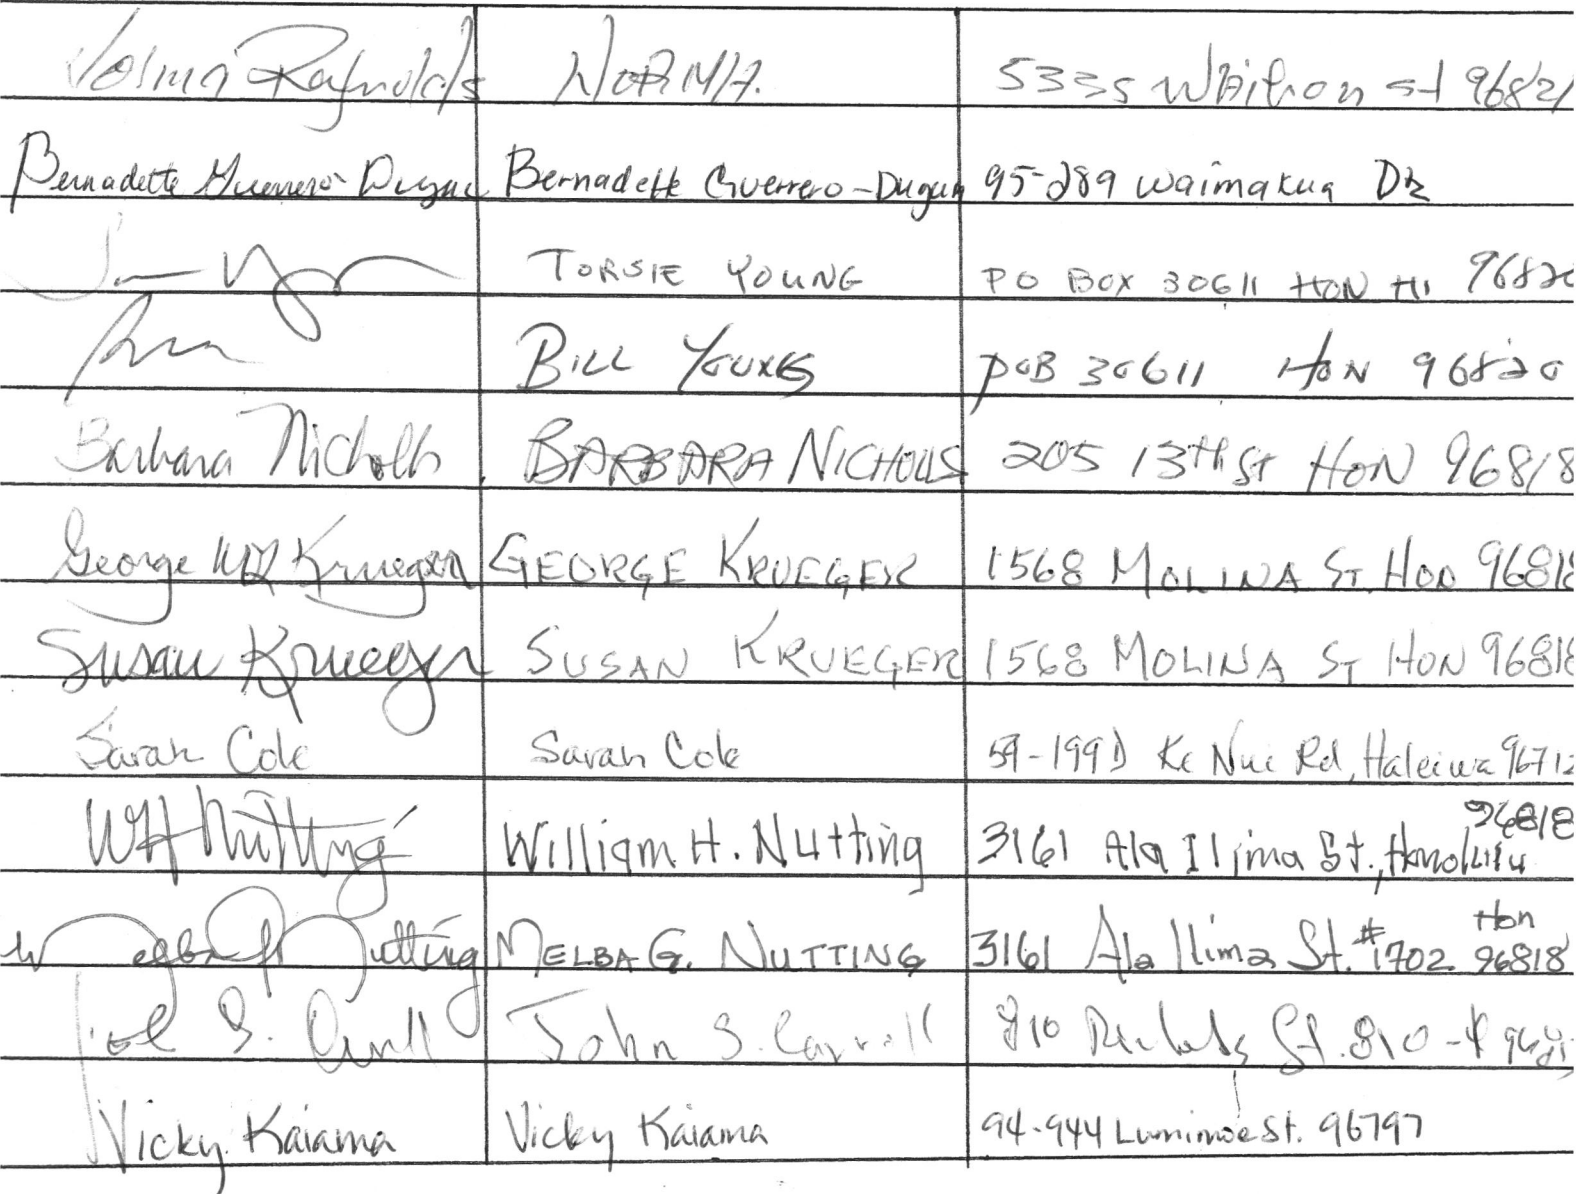 Norma Raynolds NORMA. 5335 st 96821
Bernadette Guerrero-Dugan Bernadette Guerrero-Dugan 95-289 Waimakua Dr
TORSIE YOUNG PO BOX 30611 HON HI 96820
BILL YOUNG POB 30611 HON 96820
Barbara Nicholls BARBARA NICHOLLS 205 13th St HON 96818
George Krueger GEORGE KRUEGER 1568 MOLINA ST HON 96818
Susan Krueger SUSAN KRUEGER 1568 MOLINA ST HON 96818
Sarah Cole Sarah Cole 59-199D Ke Nui Rd, Haleiwa 96712
WH Nutting William H. Nutting 3161 Ala Ilima St., Honolulu 96818
Melba G. Nutting MELBA G. NUTTING 3161 Ala Ilima St. #1702 Hon 96818
S. John S. Carroll 810 St. 810-4
Vicky Kaiama Vicky Kaiama 94-944 Lumimoe St. 96797